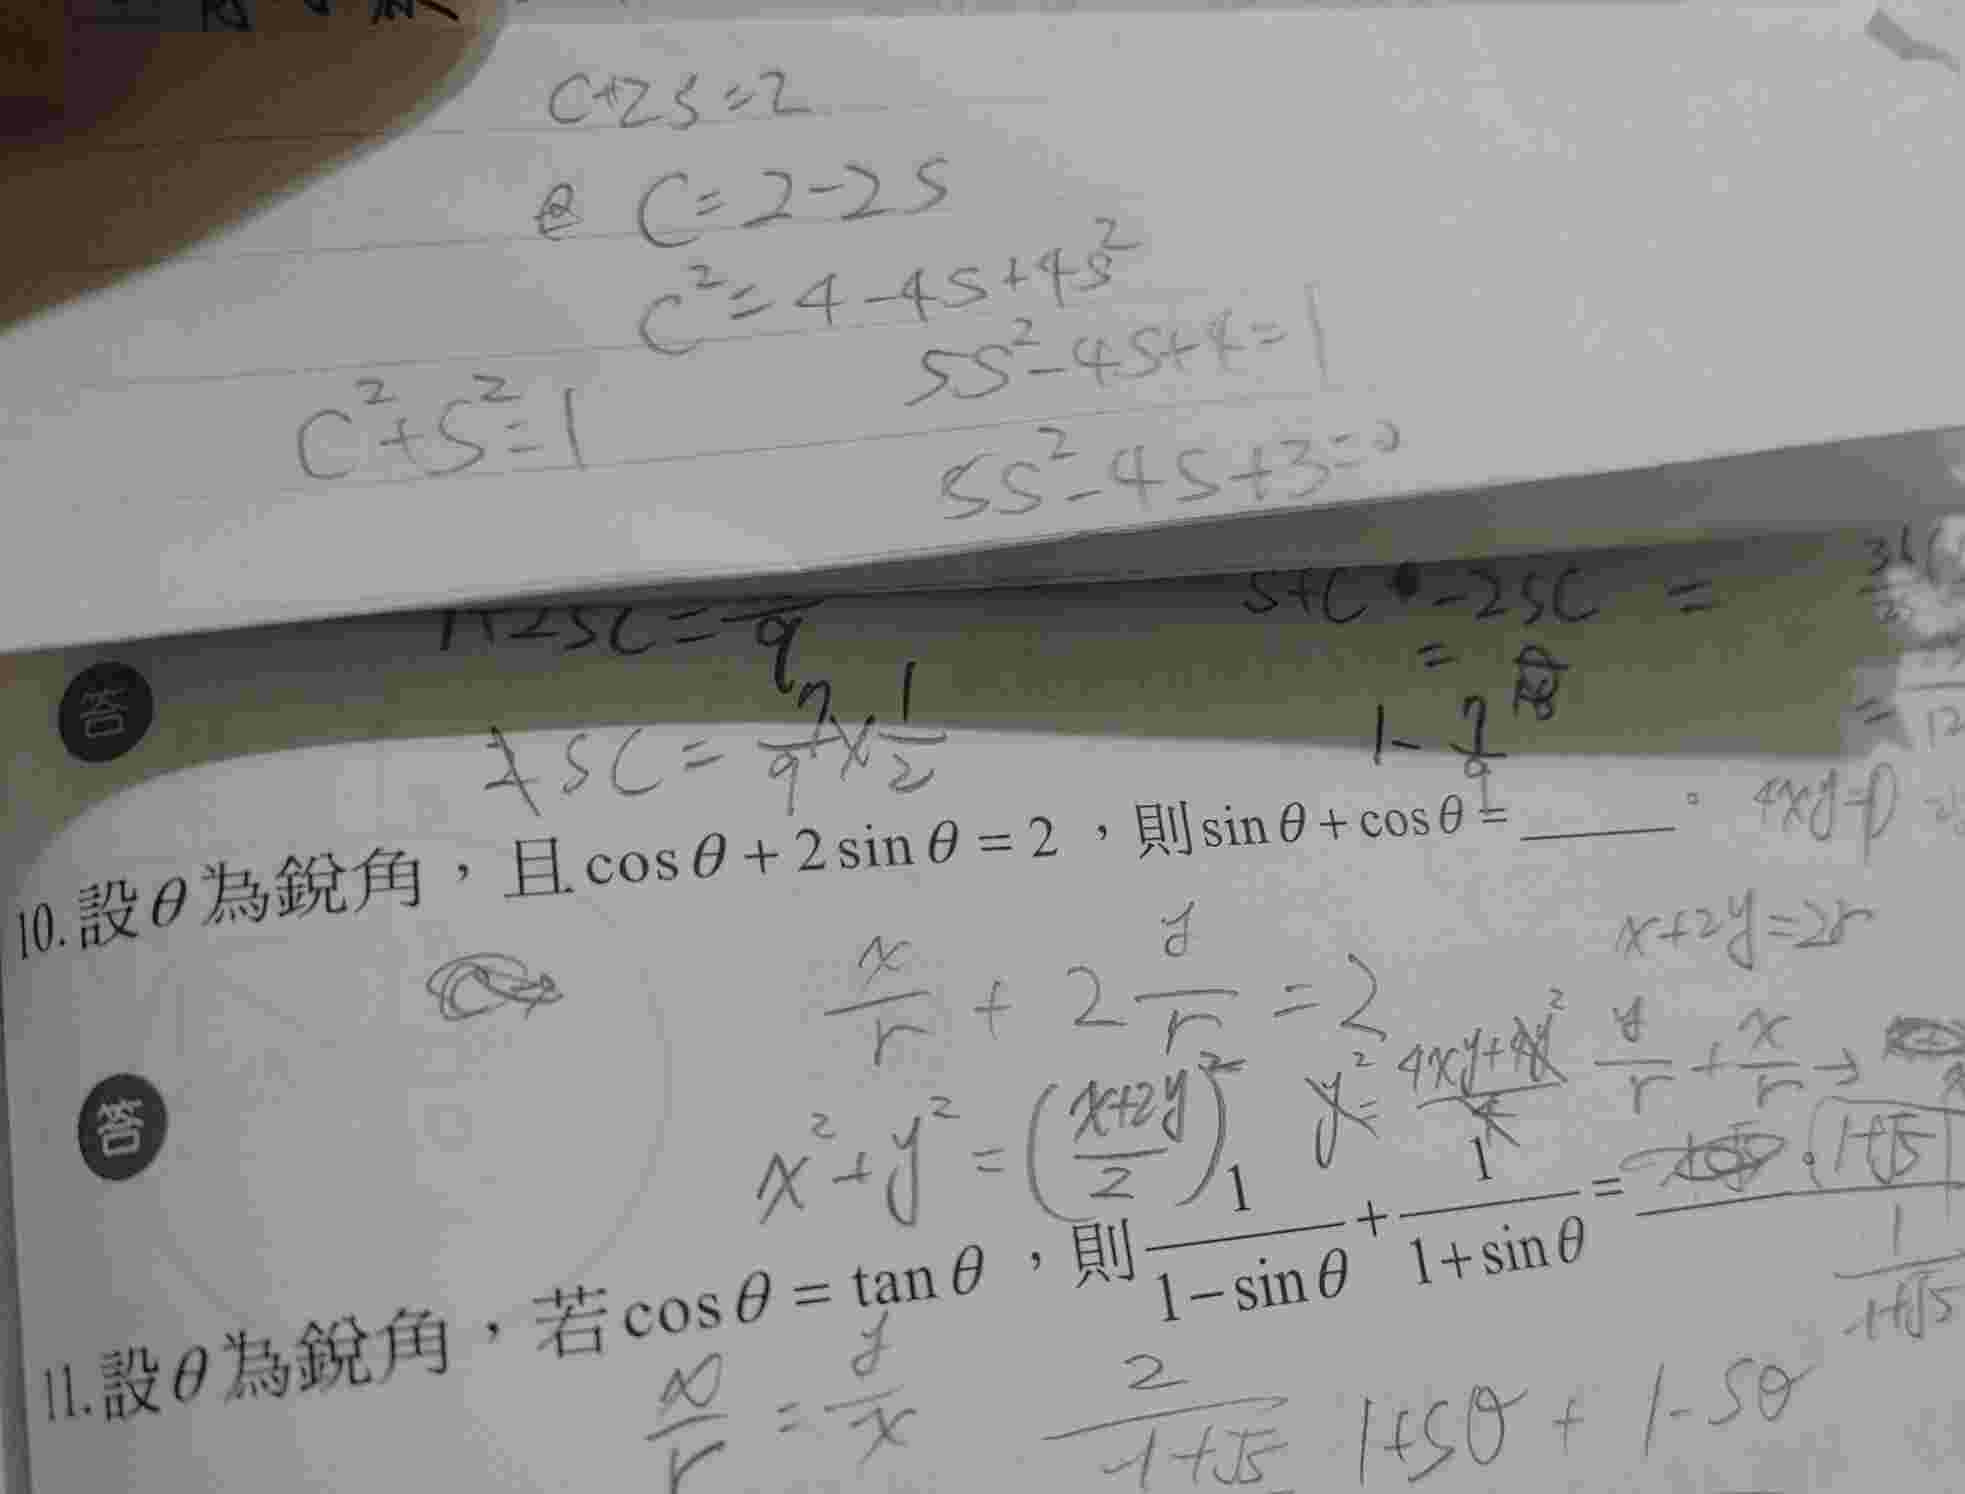 C+2S=2
C=2-2S
C²=4-4S+4S²
5S²-4S+4=1
C²+S²=1
5S²-4S+3=0
1+2SC=
9
S+C -2SC =
=
答
2SC = 7/9 × 1/2
1- 7/9
=
12
10.設θ為銳角,且cosθ+2sinθ=2,則sinθ+cosθ=____。
4xy=0
x+2y=2r
x/r + 2 y/r = 2
y/r + x/r →
答
x²+y²=((x+2y)/2)²
y²=
1+√5
11.設θ為銳角,若cosθ=tanθ,則 1/(1-sinθ) + 1/(1+sinθ) =
1/(-1+√5)
x/r = y/x
2/(-1+√5)
1+Sθ + 1-Sθ